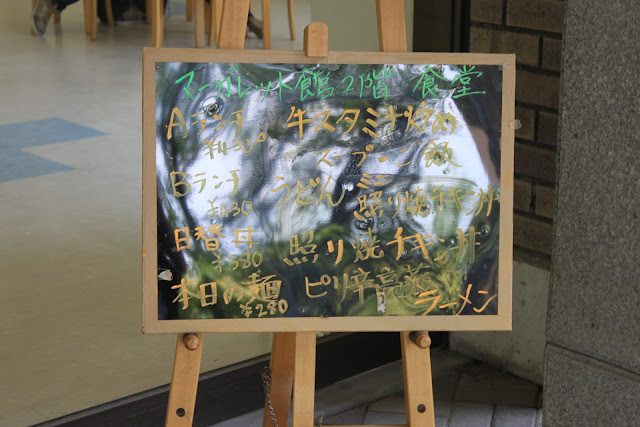 マーガレット館2階 食堂
Aランチ 牛スタミナ炒め
スープ 飯
Bランチ うどん ミニ
照り焼チキン丼
日替丼 照り焼チキン丼
¥380
本日の麺 ピリ辛高菜
¥280 ラーメン